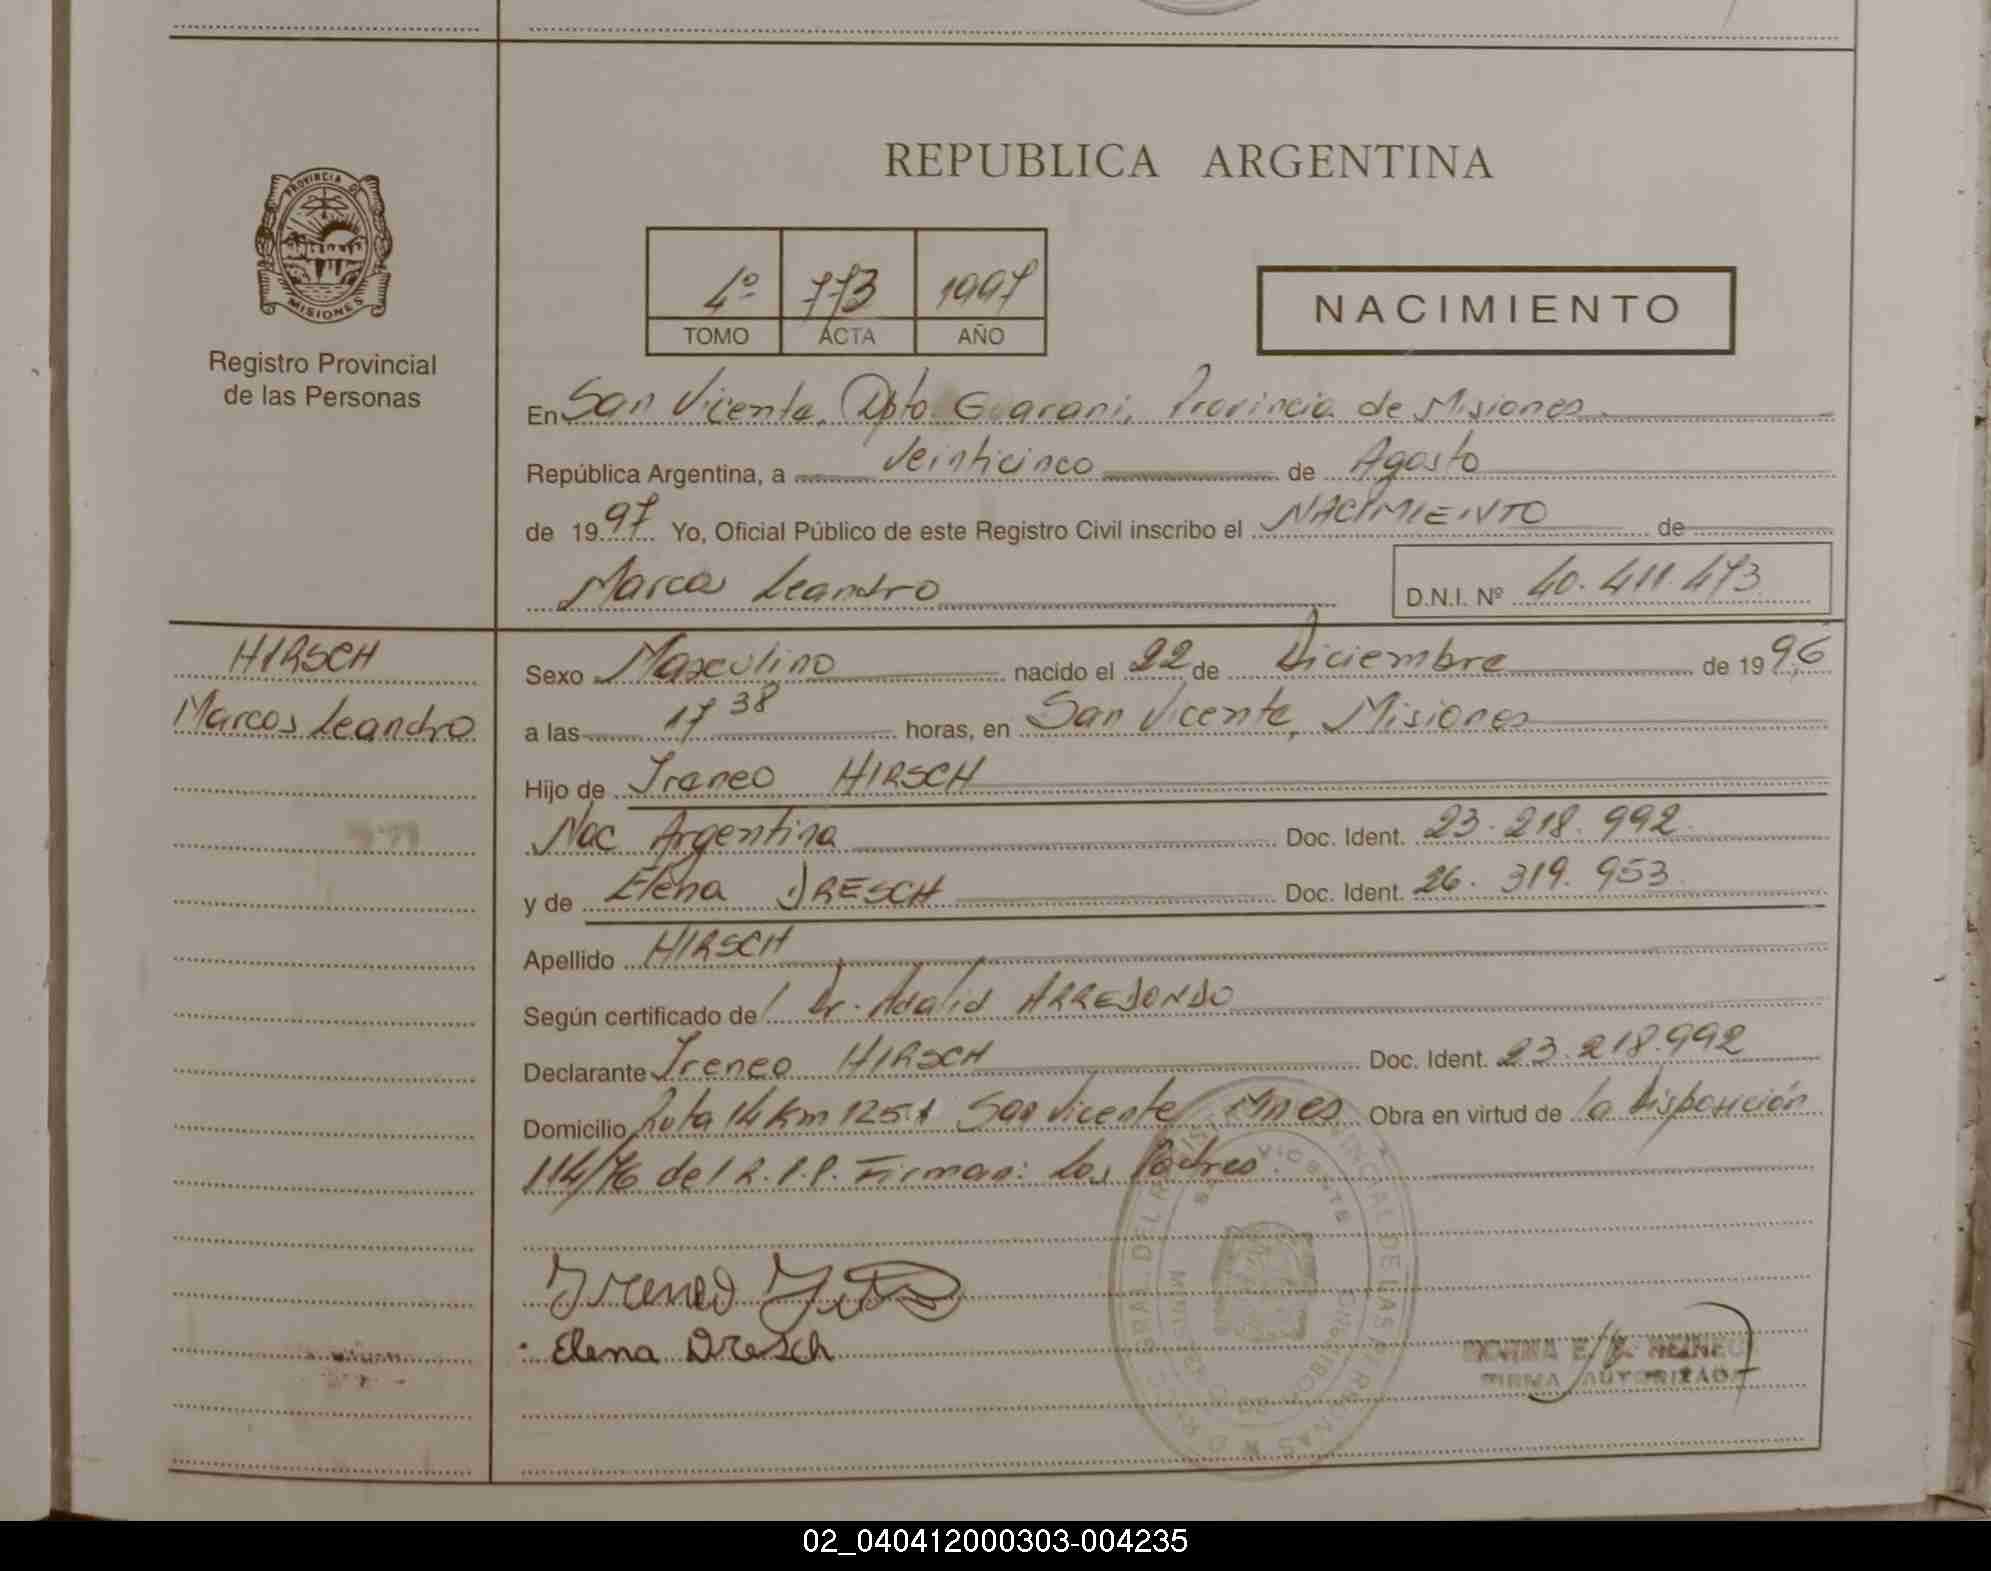 REPUBLICA ARGENTINA
PROVINCIA DE
MISIONES
Registro Provincial
de las Personas
4º 773 1997
TOMO ACTA AÑO
NACIMIENTO
En San Vicente, Dpto. Guarani, Provincia de Misiones
República Argentina, a veinticinco de Agosto
de 1997 Yo, Oficial Público de este Registro Civil inscribo el NACIMIENTO de
Marcos Leandro D.N.I. Nº 40.411.473
HIRSCH
Marcos Leandro
Sexo Masculino nacido el 22 de Diciembre de 1996
a las 17 38 horas, en San Vicente, Misiones
Hijo de Ireneo HIRSCH
Nac Argentina Doc. Ident. 23.218.992
y de Elena DRESCH Doc. Ident. 26.319.953
Apellido HIRSCH
Según certificado de Dr. Adalid ARREDONDO
Declarante Ireneo HIRSCH Doc. Ident. 23.218.992
Domicilio Ruta 14 Km 125 San Vicente Mnes Obra en virtud de la Disposición
114/76 del R.P.P. Firman: Los Padres.
Ireneo
Elena Dresch
FIRMA AUTORIZADA
02_040412000303-004235